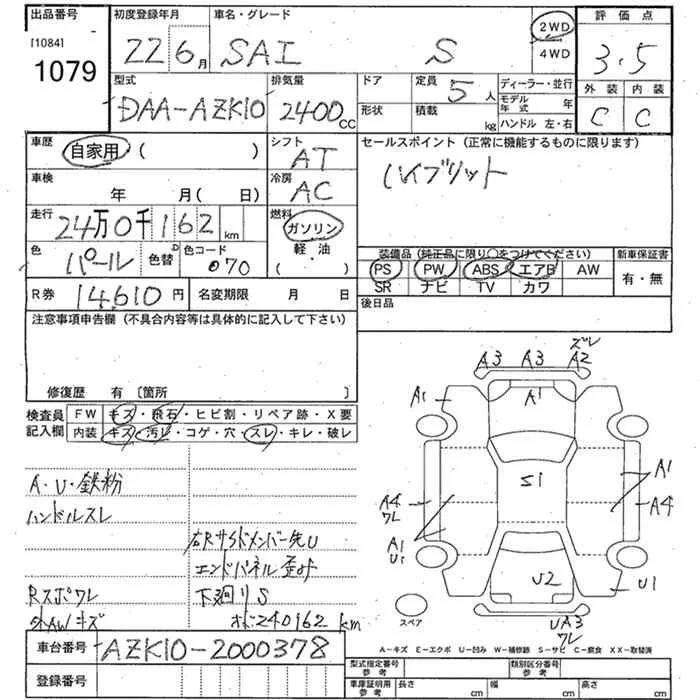 出品番号 初度登録年月 車名・グレード 2WD 評価点
[1084] 1079 22 6月 SAI S 4WD 3.5
型式 排気量 ドア 定員 ディーラー・並行 外装 内装
DAA-AZK10 2400cc 5人 モデル年式 年 C C
形状 積載 kg ハンドル 左・右
車歴 自家用 ( ) シフト AT セールスポイント (正常に機能するものに限ります)
車検 年 月(日) 冷房 AC ハイブリット
走行 24万0千162km 燃料 ガソリン 軽・油 ( )
色 パール 色替 色コード 070 装備品 (純正品に限り○をつけてください) 新車保証書
PS PW ABS エアB AW 有・無
SR ナビ TV カワ
R券 14,610円 名変期限 月 日 後日品
注意事項申告欄 (不具合内容等は具体的に記入して下さい)
修復歴 有 [箇所 ]
検査員記入欄 FW キズ・飛石・ヒビ割・リペア跡・X要
内装 キズ・汚レ・コゲ・穴・スレ・キレ・破レ
A・U・鉄粉
ハンドルスレ
右Rサイドメンバー先U
エンドパネル歪み
Rスポワレ 下廻りS
外AWキズ 240162km
車台番号 AZK10-2000378
登録番号
A3 A3 A2 ズレ
A1 A1
S1
A1
A4 ワレ A4
A1 U1
U2 U1
スペア UA3 ワレ
A-キズ E-エクボ U-凹み W-補修跡 S-サビ C-腐食 XX-取替済
型式指定番号 参考 類別区分番号 参考
車庫証明用 参考 長さ cm 幅 cm 高さ cm